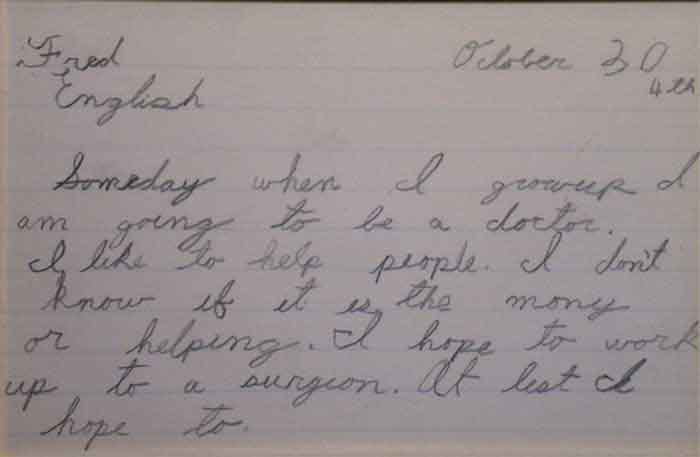 Fred October 30
English 4th
Someday when I growup I
am going to be a doctor.
I like to help people. I don't
know if it is the mony
or helping. I hope to work
up to a surgion. At lest I
hope to.